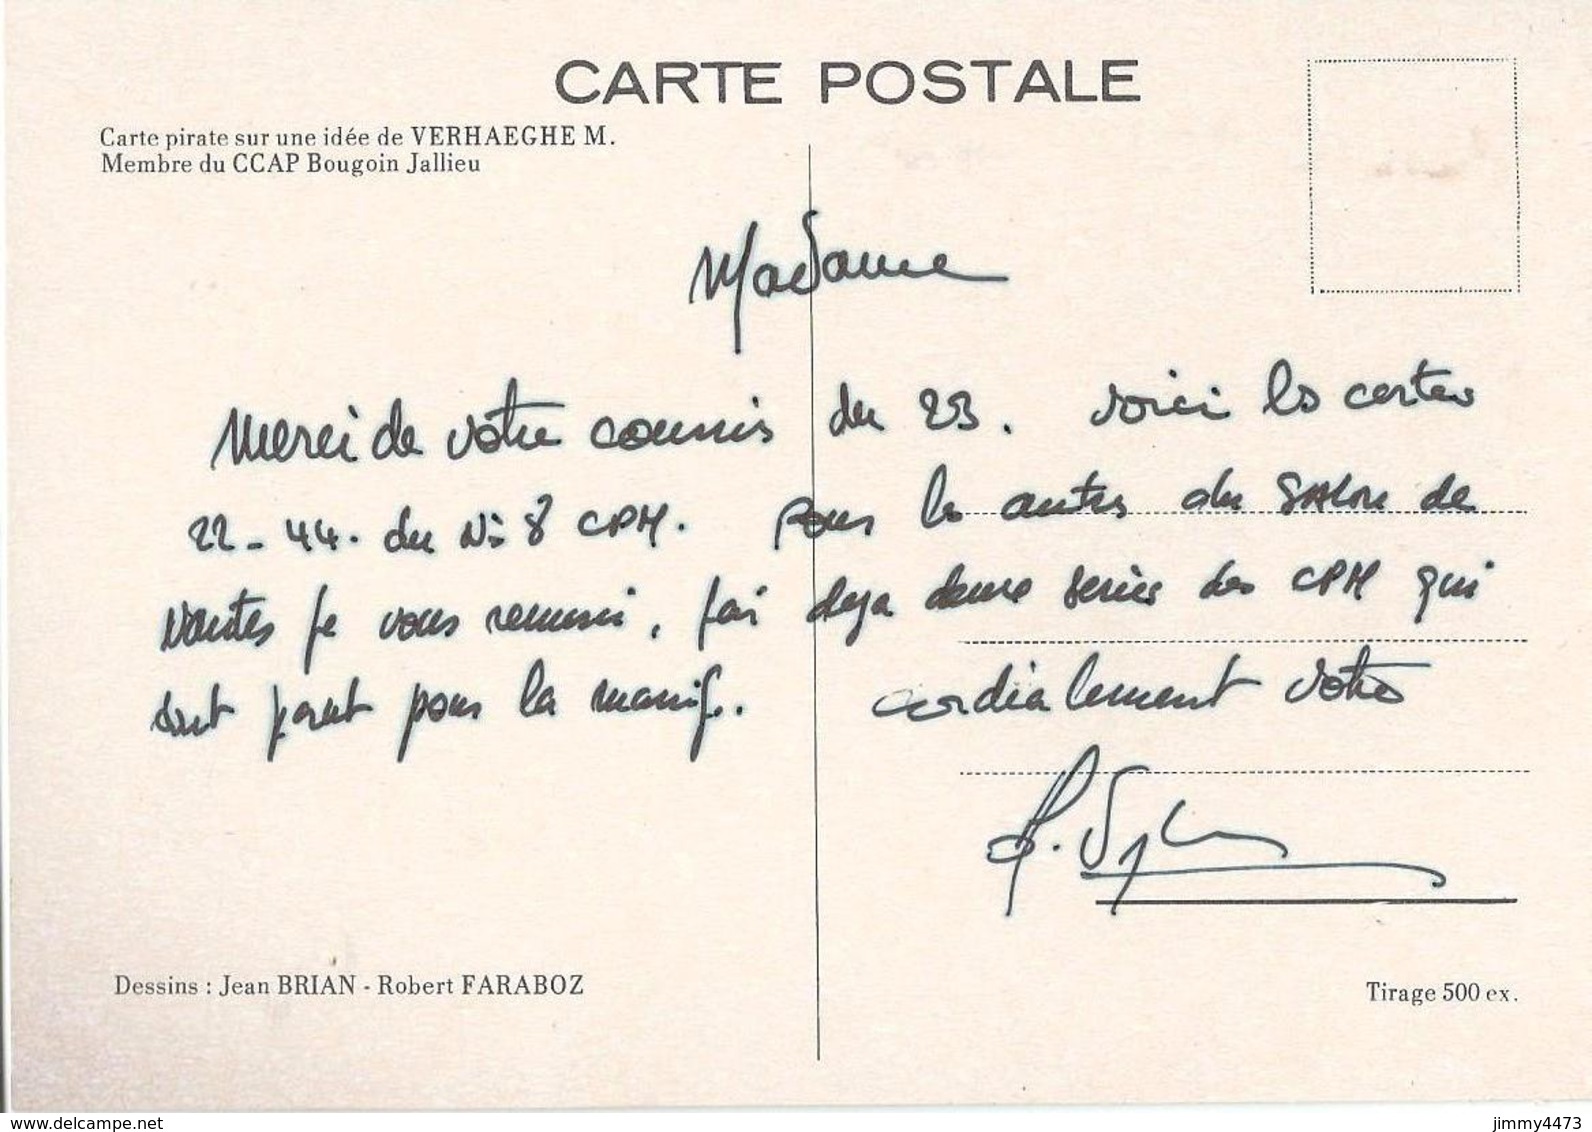 CARTE POSTALE
Carte pirate sur une idée de VERHAEGHE M.
Membre du CCAP Bougoin Jallieu
Madame
Merci de votre du 23. Voici les cartes
22-44. du N: 8 CPM. Pour les autres du SALON de
Nantes je vous remerci, j'ai deja deux series des CPM qui
sont parut pour la manif. Cordialement votre
Dessins : Jean BRIAN - Robert FARABOZ
Tirage 500 ex.
www.delcampe.net
jimmy4473